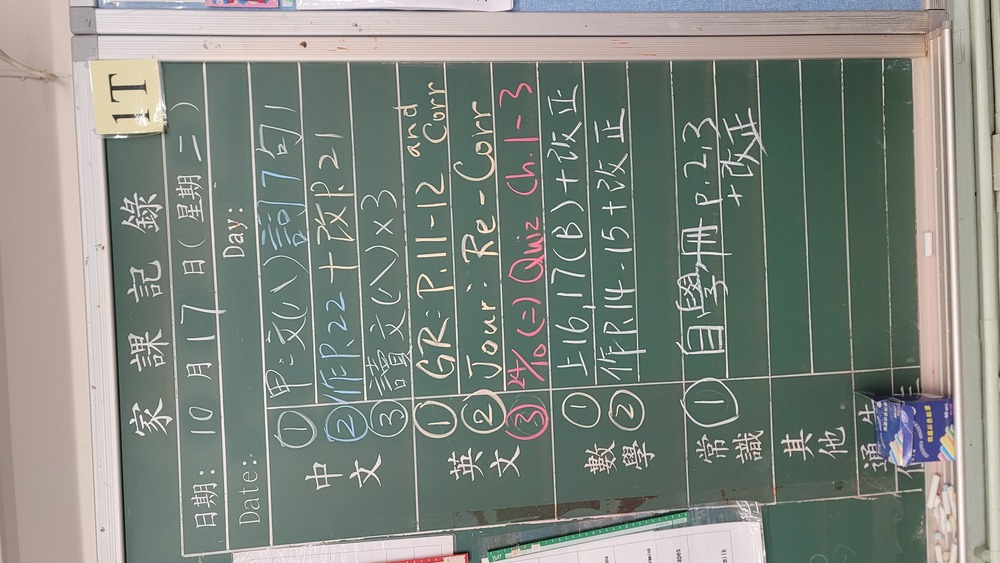 1T
家課記錄
日期: 10 月 17 日 (星期 二)
Date: Day:
中文
① 甲:文(八)詞7句1
② 作P.22+改P.21
③ 讀文(八)×3
英文
① GR: P.11-12 and Corr
② Jour: Re-Corr
③ 24/10 (二) Quiz Ch.1-3
數學
① 上16,17(B)+改正
② 作P.14-15+改正
常識
① 自學冊 P.2,3
+改正
其他
通